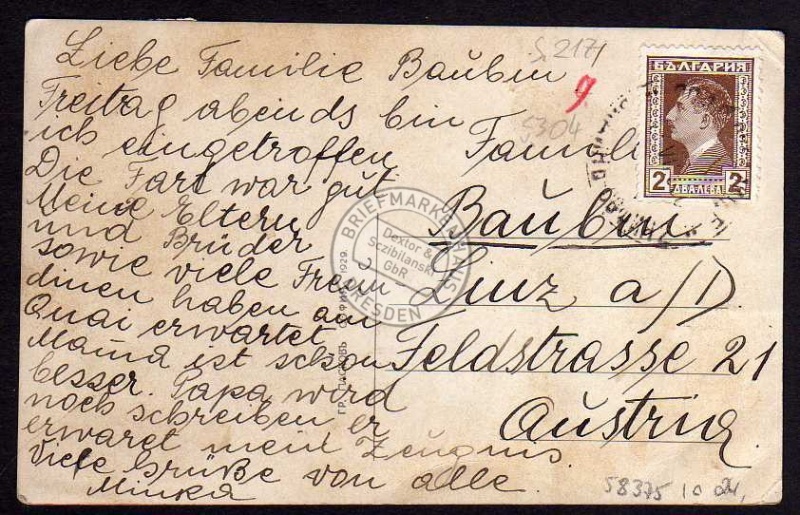 Liebe Familie Baŭbin
Freitag abends bin
ich eingetroffen
Die Fart war gut
Meine Eltern
und Brüder
sowie viele Freun-
dinen haben am
Quai erwartet
Mama ist schon
besser. Papa wird
noch schreiben er
erwaret mein Zeugnis
Viele Grüße von alle.
Minka
S 2171
9
5304
БЪЛГАРИЯ
2 ДВА ЛЕВА 2
Familie
Baŭbin
Linz a/D.
Feldstrasse 21
Aŭstria
ГР. ПАСКОВЪ СОФИЯ 1929.
BRIEFMARKENHAUS
Dextor &
Sczibilanski
GbR
DRESDEN
58375